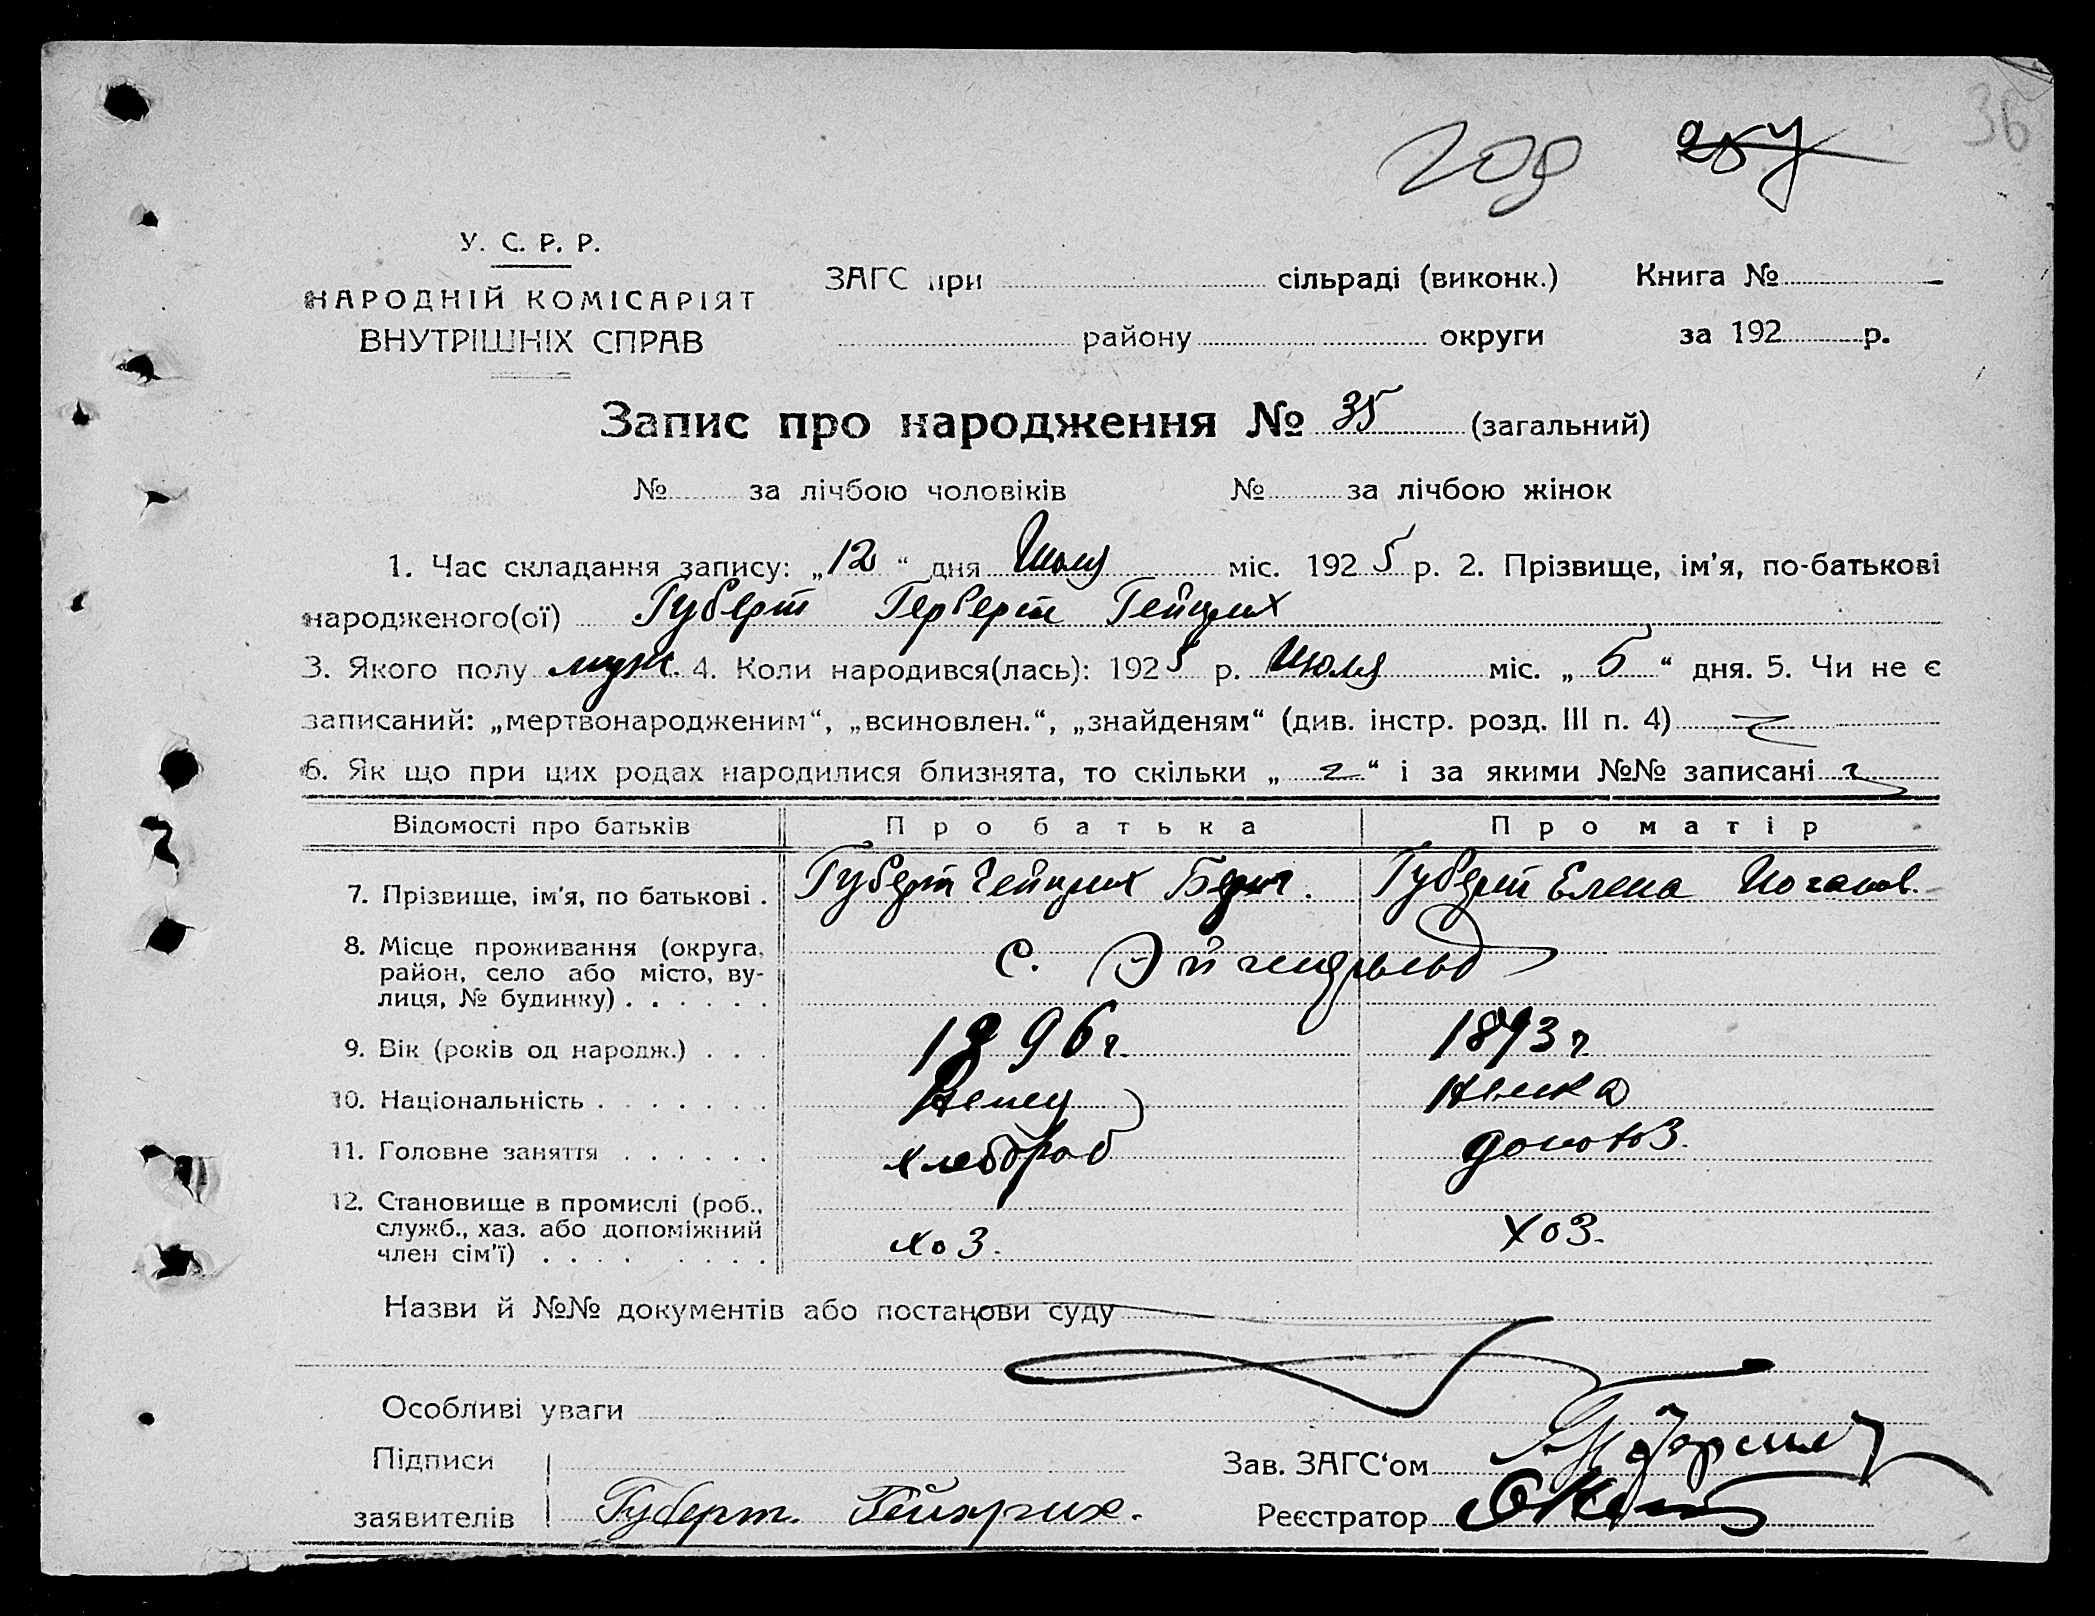 36
209
257
У. С. Р. Р.
НАРОДНІЙ КОМІСАРІЯТ
ВНУТРІШНІХ СПРАВ
ЗАГС при сільраді (виконк.) Книга №
району округи за 192 р.
Запис про народження № 35 (загальний)
№ за лічбою чоловіків № за лічбою жінок
1. Час складання запису: „12“ дня Июля міс. 1925 р. 2. Прізвище, ім'я, по-батькові
народженого(ої) Губерт Герберт Гейнрих
3. Якого полу муж. 4. Коли народився(лась): 1925 р. Июля міс. „5“ дня. 5. Чи не є
записаний: „мертвонародженим“, „всиновлен.“, „знайденям“ (див. інстр. розд. III п. 4)
6. Як що при цих родах народилися близнята, то скільки „ “ і за якими №№ записані
Відомості про батьків Про батька Про матір
7. Прізвище, ім'я, по батькові . Губерт Гейнрих Губерт Елена Иоганов.
8. Місце проживання (округа,
район, село або місто, ву-
лиця, № будинку) . . . . . . с. Эйгенфельд
9. Вік (років од народж.) . . . 1896 г. 1893 г
10. Національність . . . . . . . Немец Немка
11. Головне заняття . . . . . . хлебороб домохоз.
12. Становище в промислі (роб.,
служб., хаз. або допоміжний
член сім'ї) . . . . . . . . хоз. хоз.
Назви й №№ документів або постанови суду
Особливі уваги
Підписи
заявителів Губерт. Гейнрих.
Зав. ЗАГС'ом
Реєстратор